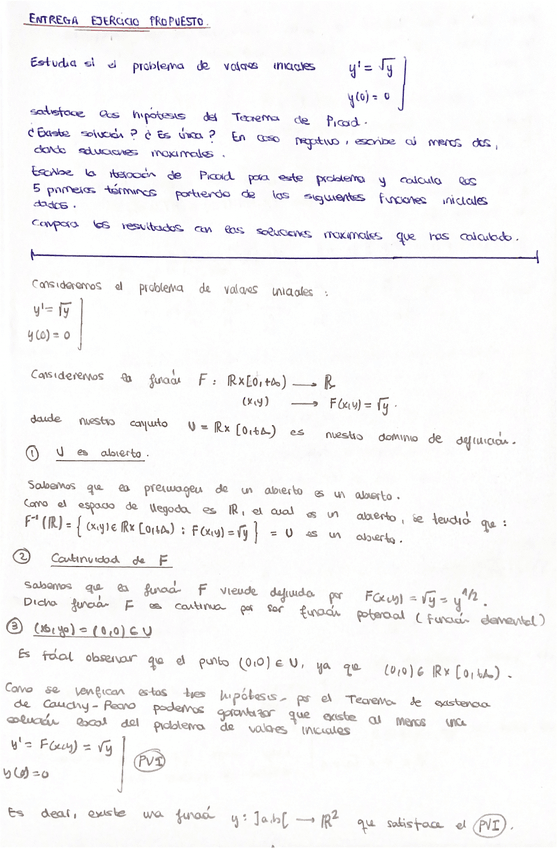 ENTREGA EJERCICIO PROPUESTO.
Estudia si el problema de valores iniciales y' = √y
y(0) = 0
satisface las hipótesis del Teorema de Picard.
¿Existe solución? ¿Es única? En caso negativo, escribe al menos dos,
dando soluciones maximales.
Escribe la iteración de Picard para este problema y calcula los
5 primeros términos partiendo de las siguientes funciones iniciales
dadas.
Compara los resultados con las soluciones maximales que has calculado.
Consideremos el problema de valores iniciales :
y' = √y
y(0) = 0
Consideremos la función F : ℝ×[0,+∞) → ℝ
(x,y) → F(x,y) = √y .
donde nuestro conjunto U = ℝ×[0,+∞) es nuestro dominio de definición.
① U es abierto.
Sabemos que la preimagen de un abierto es un abierto.
Como el espacio de llegada es ℝ, el cual es un abierto, se tendrá que :
F⁻¹(ℝ) = { (x,y) ∈ ℝ×[0,+∞) : F(x,y) = √y } = U es un abierto.
② Continuidad de F
Sabemos que la función F viene definida por F(x,y) = √y = y^1/2.
Dicha función F es continua por ser función potencial (función elemental)
③ (x0,y0) = (0,0) ∈ U
Es fácil observar que el punto (0,0) ∈ U, ya que (0,0) ∈ ℝ×[0,+∞).
Como se verifican estas tres hipótesis, por el Teorema de existencia
de Cauchy-Peano podemos garantizar que existe al menos una
solución local del problema de valores iniciales
y' = F(x,y) = √y
y(0) = 0
PVI
Es decir, existe una función y : ]a,b[ → ℝ² que satisface el PVI.